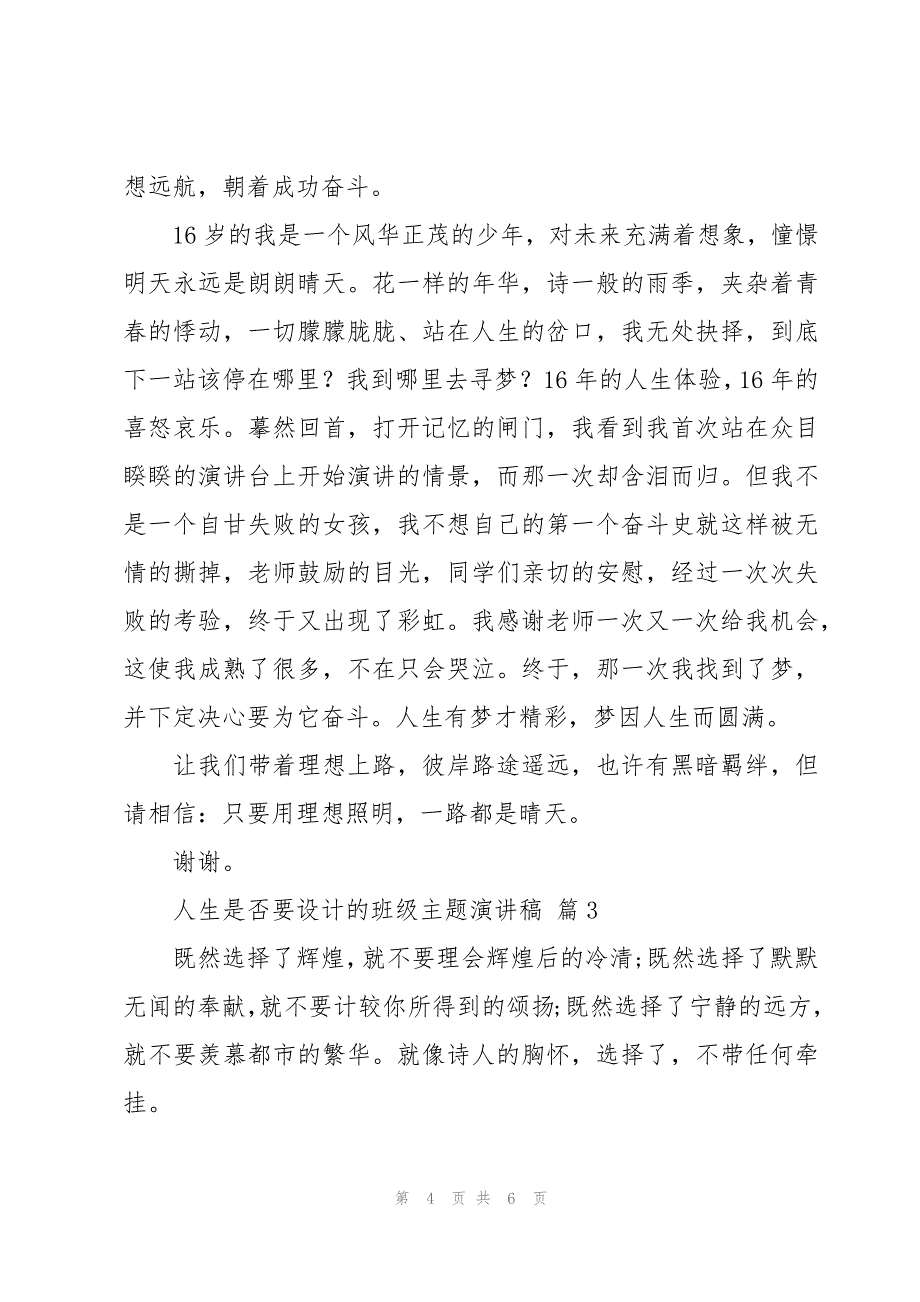 想远航，朝着成功奋斗。
16 岁的我是一个风华正茂的少年，对未来充满着想象，憧憬
明天永远是朗朗晴天。花一样的年华，诗一般的雨季，夹杂着青
春的悸动，一切朦朦胧胧、站在人生的岔口，我无处抉择，到底
下一站该停在哪里？我到哪里去寻梦？16 年的人生体验，16 年的
喜怒哀乐。摹然回首，打开记忆的闸门，我看到我首次站在众目
睽睽的演讲台上开始演讲的情景，而那一次却含泪而归。但我不
是一个自甘失败的女孩，我不想自己的第一个奋斗史就这样被无
情的撕掉，老师鼓励的目光，同学们亲切的安慰，经过一次次失
败的考验，终于又出现了彩虹。我感谢老师一次又一次给我机会，
这使我成熟了很多，不在只会哭泣。终于，那一次我找到了梦，
并下定决心要为它奋斗。人生有梦才精彩，梦因人生而圆满。
让我们带着理想上路，彼岸路途遥远，也许有黑暗羁绊，但
请相信：只要用理想照明，一路都是晴天。
谢谢。
人生是否要设计的班级主题演讲稿 篇 3
既然选择了辉煌，就不要理会辉煌后的冷清;既然选择了默默
无闻的奉献，就不要计较你所得到的颂扬;既然选择了宁静的远方，
就不要羡慕都市的繁华。就像诗人的胸怀，选择了，不带任何牵
挂。
第 4 页 共 6 页